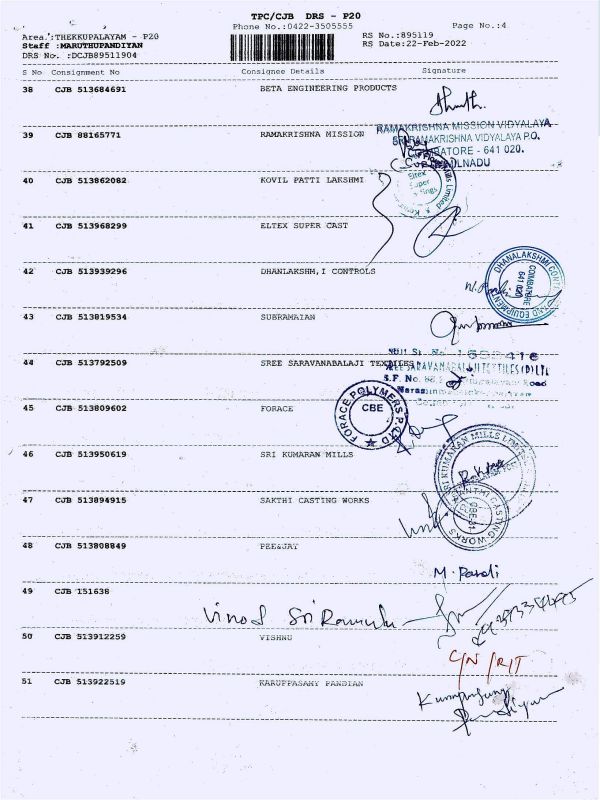 TPC/CJB DRS - P20
Phone No.:0422-3505555 Page No.:4
Area :THEKKUPALAYAM - P20 RS No.:895119
Staff :MARUTHUPANDIYAN RS Date:22-Feb-2022
DRS No. :DCJB89511904
S No Consignment No Consignee Details Signature
38 CJB 513684691 BETA ENGINEERING PRODUCTS
39 CJB 88165771 RAMAKRISHNA MISSION
RAMAKRISHNA MISSION VIDYALAYA
SRI RAMAKRISHNA VIDYALAYA P.O.
641 020.
40 CJB 513862082 KOVIL PATTI LAKSHMI
41 CJB 513968299 ELTEX SUPER CAST
42 CJB 513939296 DHANLAKSHM,I CONTROLS
COIMBATORE
641 020
43 CJB 513819534 SUBRAMAIAN
44 CJB 513792509 SREE SARAVANABALAJI TEXTILES
S.F. No.
Road
45 CJB 513809602 FORACE
FORACE POLYMERS P. LTD
CBE
46 CJB 513950619 SRI KUMARAN MILLS
SRI KUMARAN MILLS LIMITED
47 CJB 513894915 SAKTHI CASTING WORKS
SAKTHI CASTING WORKS
48 CJB 513808849 PEE&JAY
M. Pandi
49 CJB 151638
Vinod Sriramulu
50 CJB 513912259 VISHNU
C/N /RIT
51 CJB 513922519 KARUPPASAMY PANDIAN